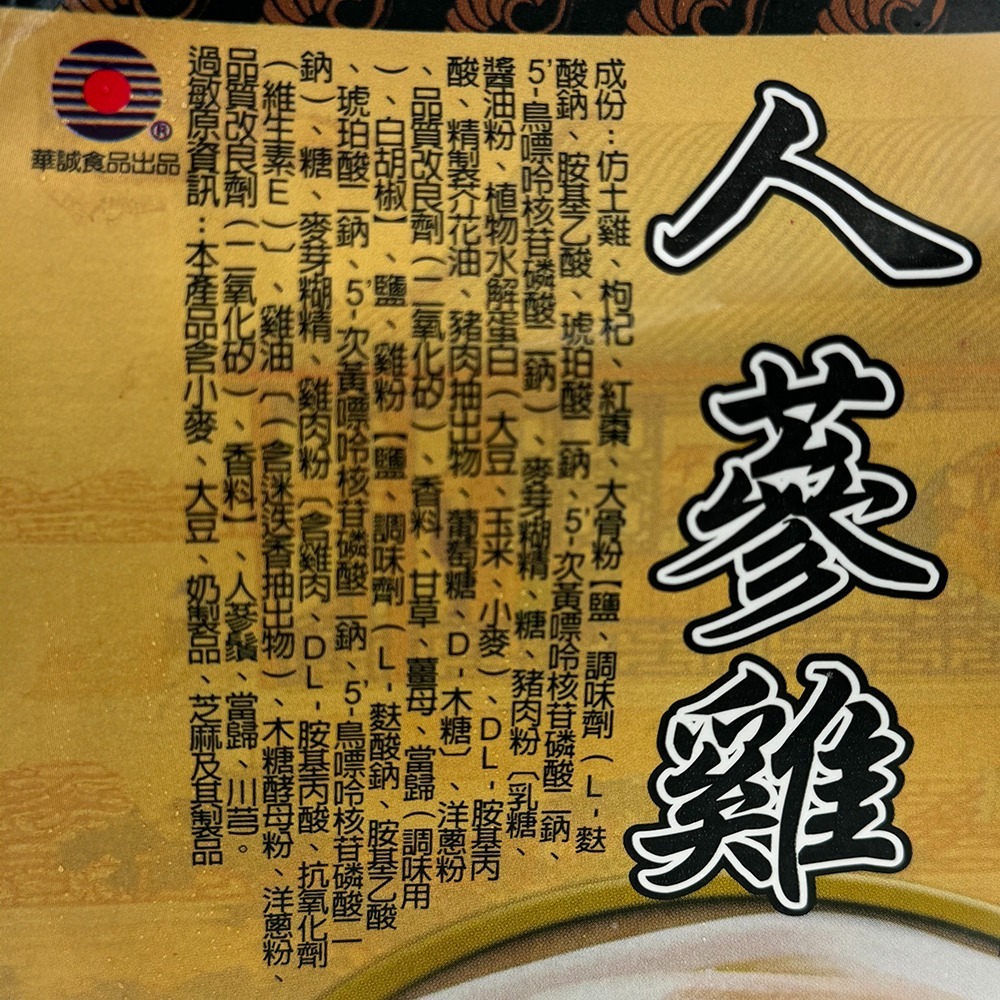 人蔘雞
成份：仿土雞、枸杞、紅棗、大骨粉【鹽、調味劑（L-麩
酸鈉、胺基乙酸、琥珀酸二鈉、5'-次黃嘌呤核苷磷酸二鈉、
5'-鳥嘌呤核苷磷酸二鈉）、麥芽糊精、糖、豬肉粉〔乳糖、
醬油粉、植物水解蛋白（大豆、玉米、小麥）、DL-胺基丙
酸、精製芥花油、豬肉抽出物、葡萄糖、D-木糖〕、洋蔥粉
、品質改良劑（二氧化矽）、香料、甘草、薑母、當歸（調味用
）、白胡椒】、鹽、雞粉【鹽、調味劑（L-麩酸鈉、胺基乙酸
、琥珀酸二鈉、5'-次黃嘌呤核苷磷酸二鈉、5'-鳥嘌呤核苷磷酸二
鈉）、糖、麥芽糊精、雞肉粉〔含雞肉、DL-胺基丙酸、抗氧化劑
（維生素E）〕、雞油〔（含迷迭香抽出物）、木糖酵母粉、洋蔥粉、
品質改良劑（二氧化矽）、香料】、人蔘鬚、當歸、川芎。
過敏原資訊：本產品含小麥、大豆、奶製品、芝麻及其製品
®
華誠食品出品